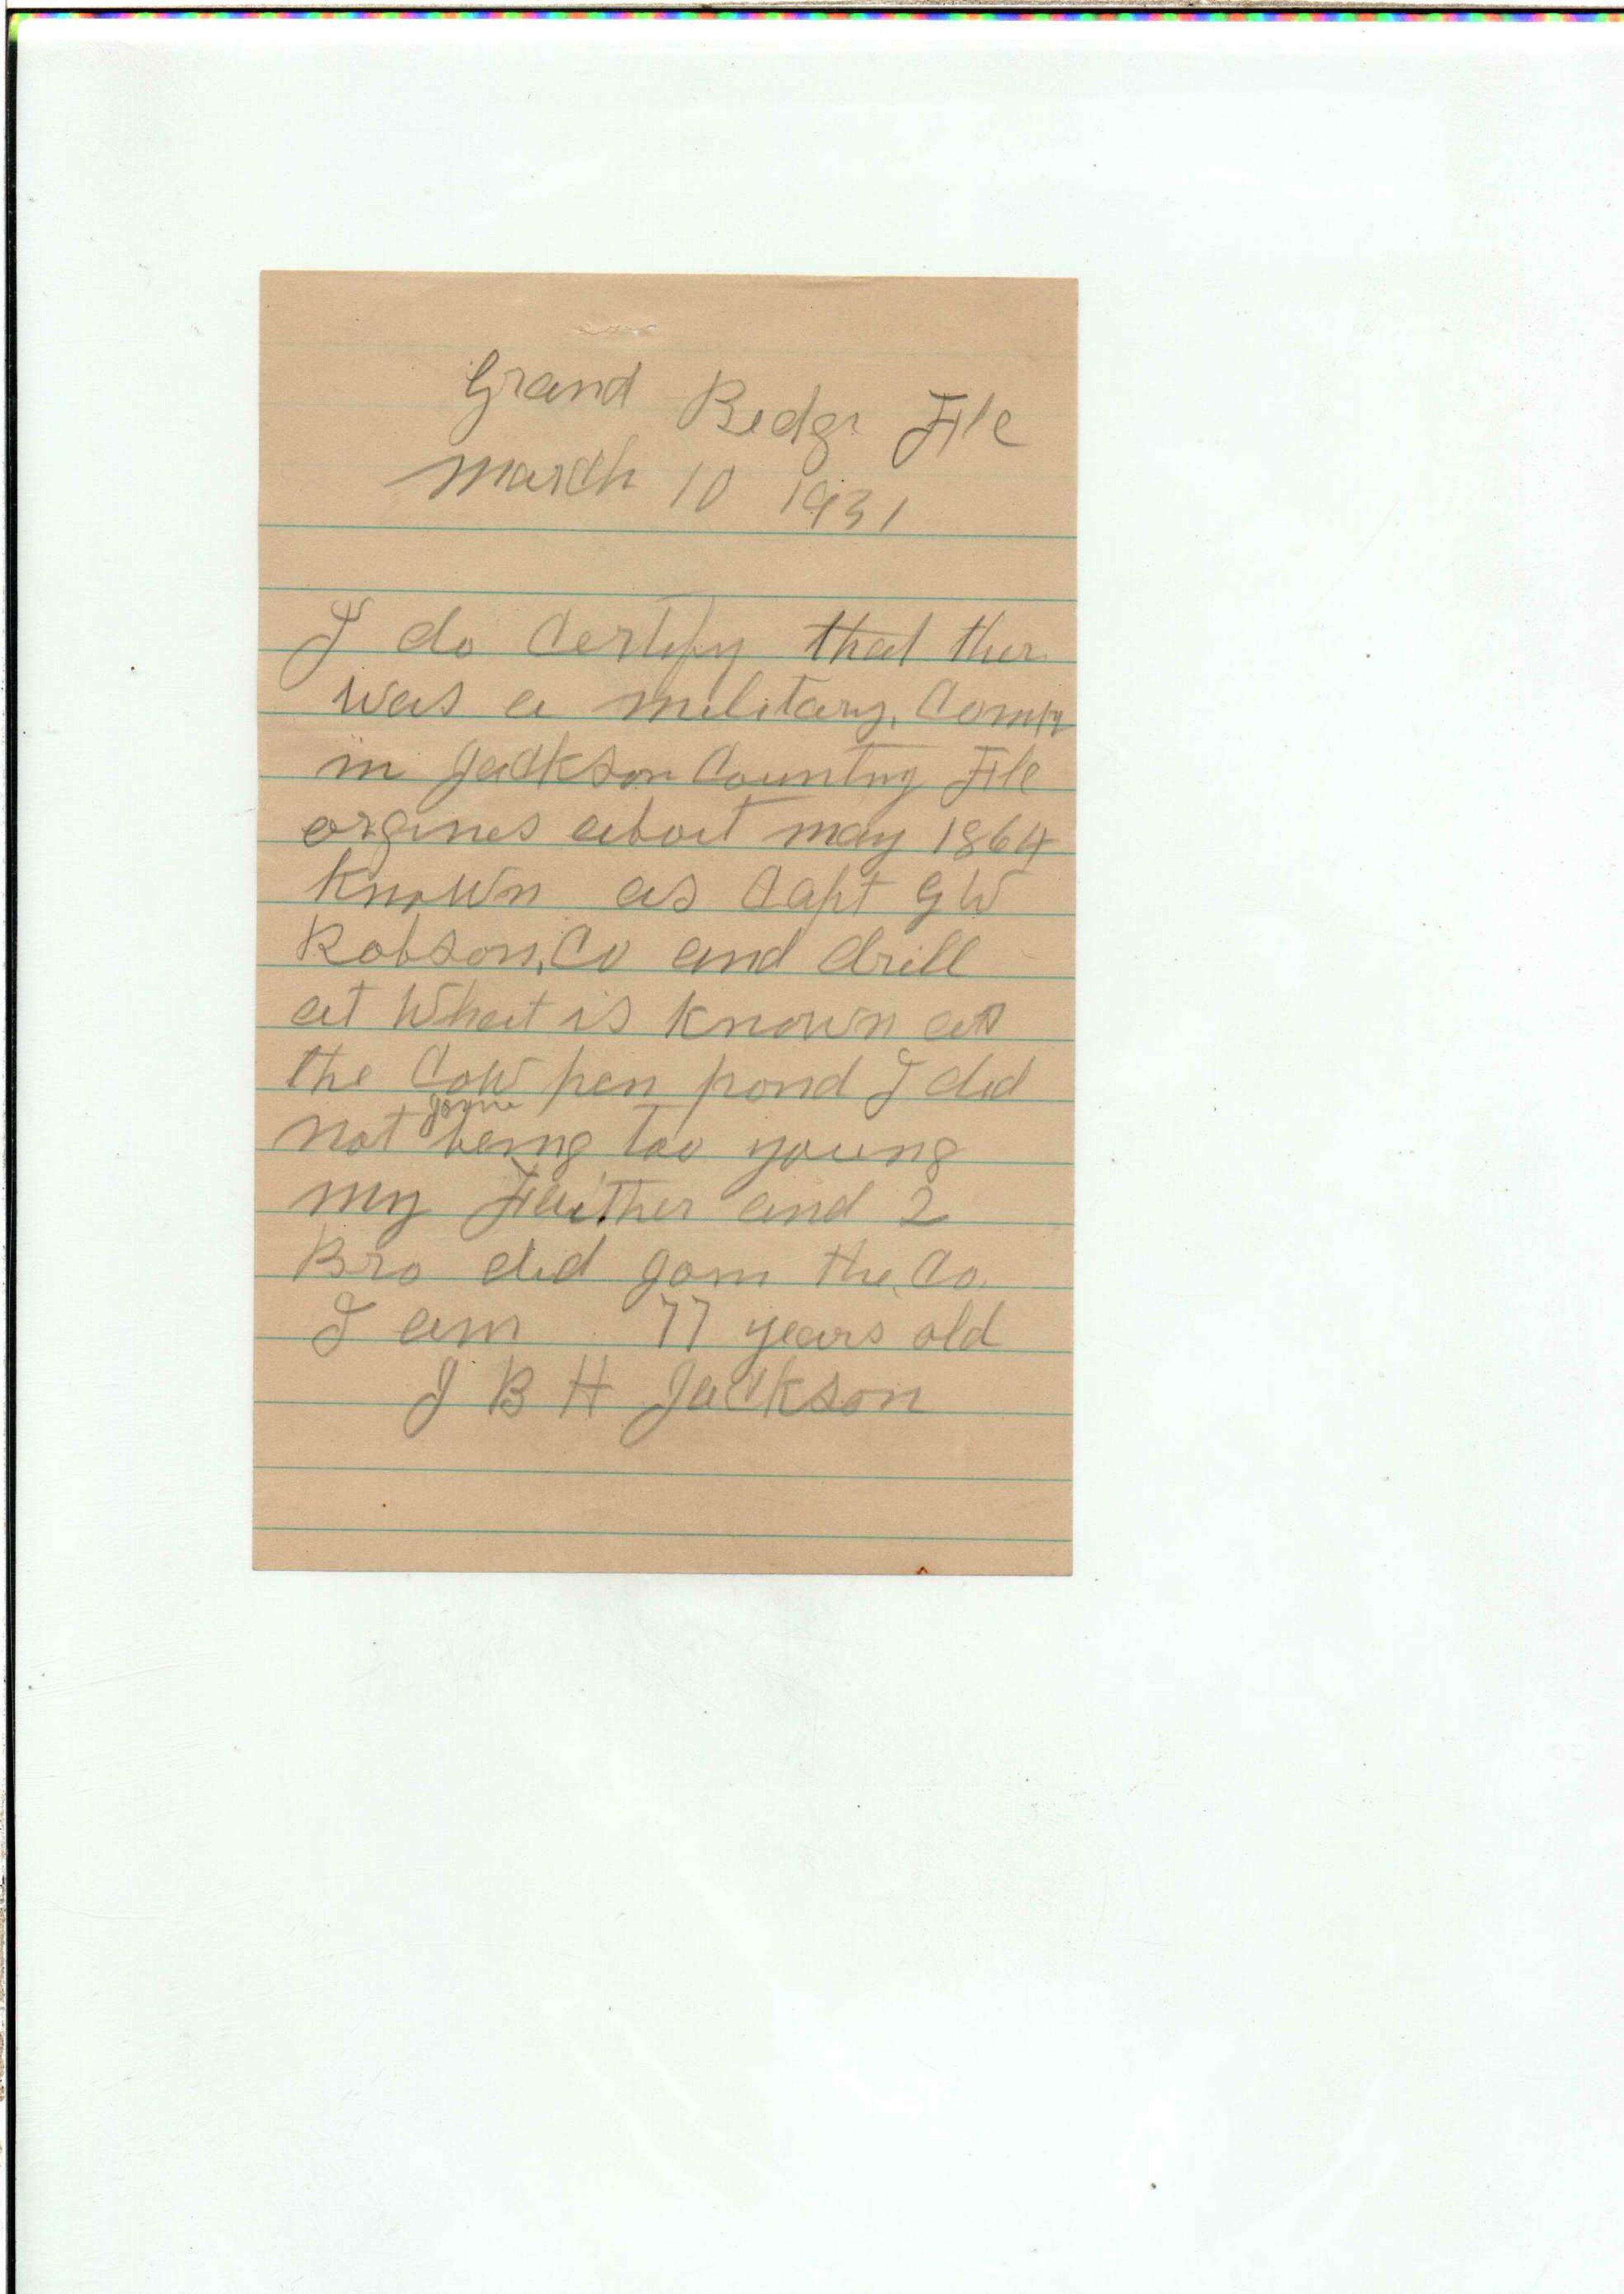 Grand Redge Fle
March 10 1931
I do Certify that ther
was a military, Comp
in Jackson Country Fle
orgines about may 1864
Known as Capt G W
Robson, Co and drill
at What is known as
the Cow pen pond I did
not joyne being too young
my Faither and 2
Bro did join the Co.
I am 77 years old
J B H Jackson